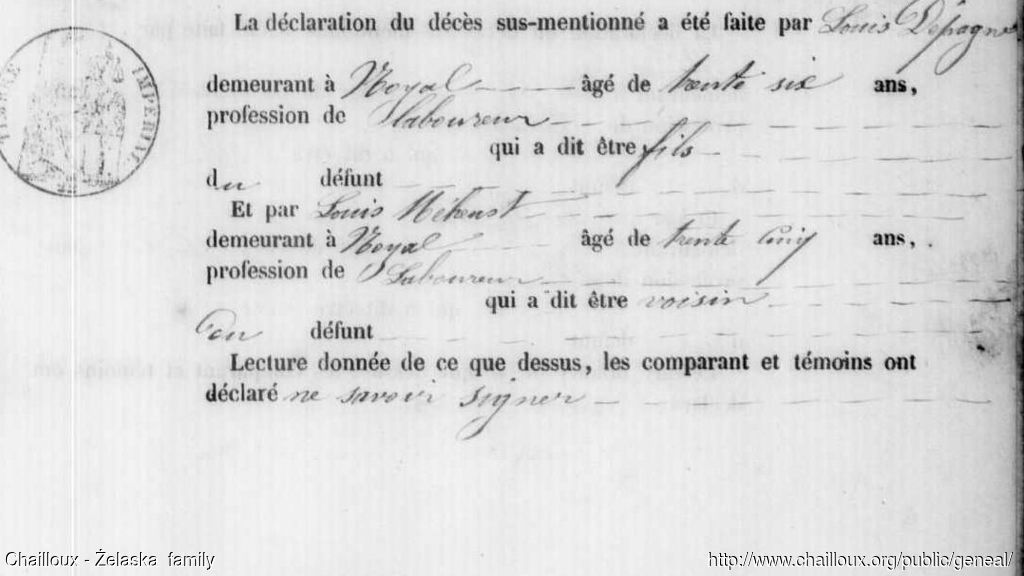 La déclaration du décès sus-mentionné a été faite par Louis Depagne
demeurant à Noyal âgé de trente six ans,
profession de laboureur
qui a dit être fils
du défunt
Et par Louis Méheust
demeurant à Noyal âgé de trente cinq ans,
profession de Laboureur
qui a dit être voisin
du défunt
Lecture donnée de ce que dessus, les comparant et témoins ont
déclaré ne savoir signer
TIMBRE IMPÉRIAL
Chailloux - Żelaska family
http://www.chailloux.org/public/geneal/